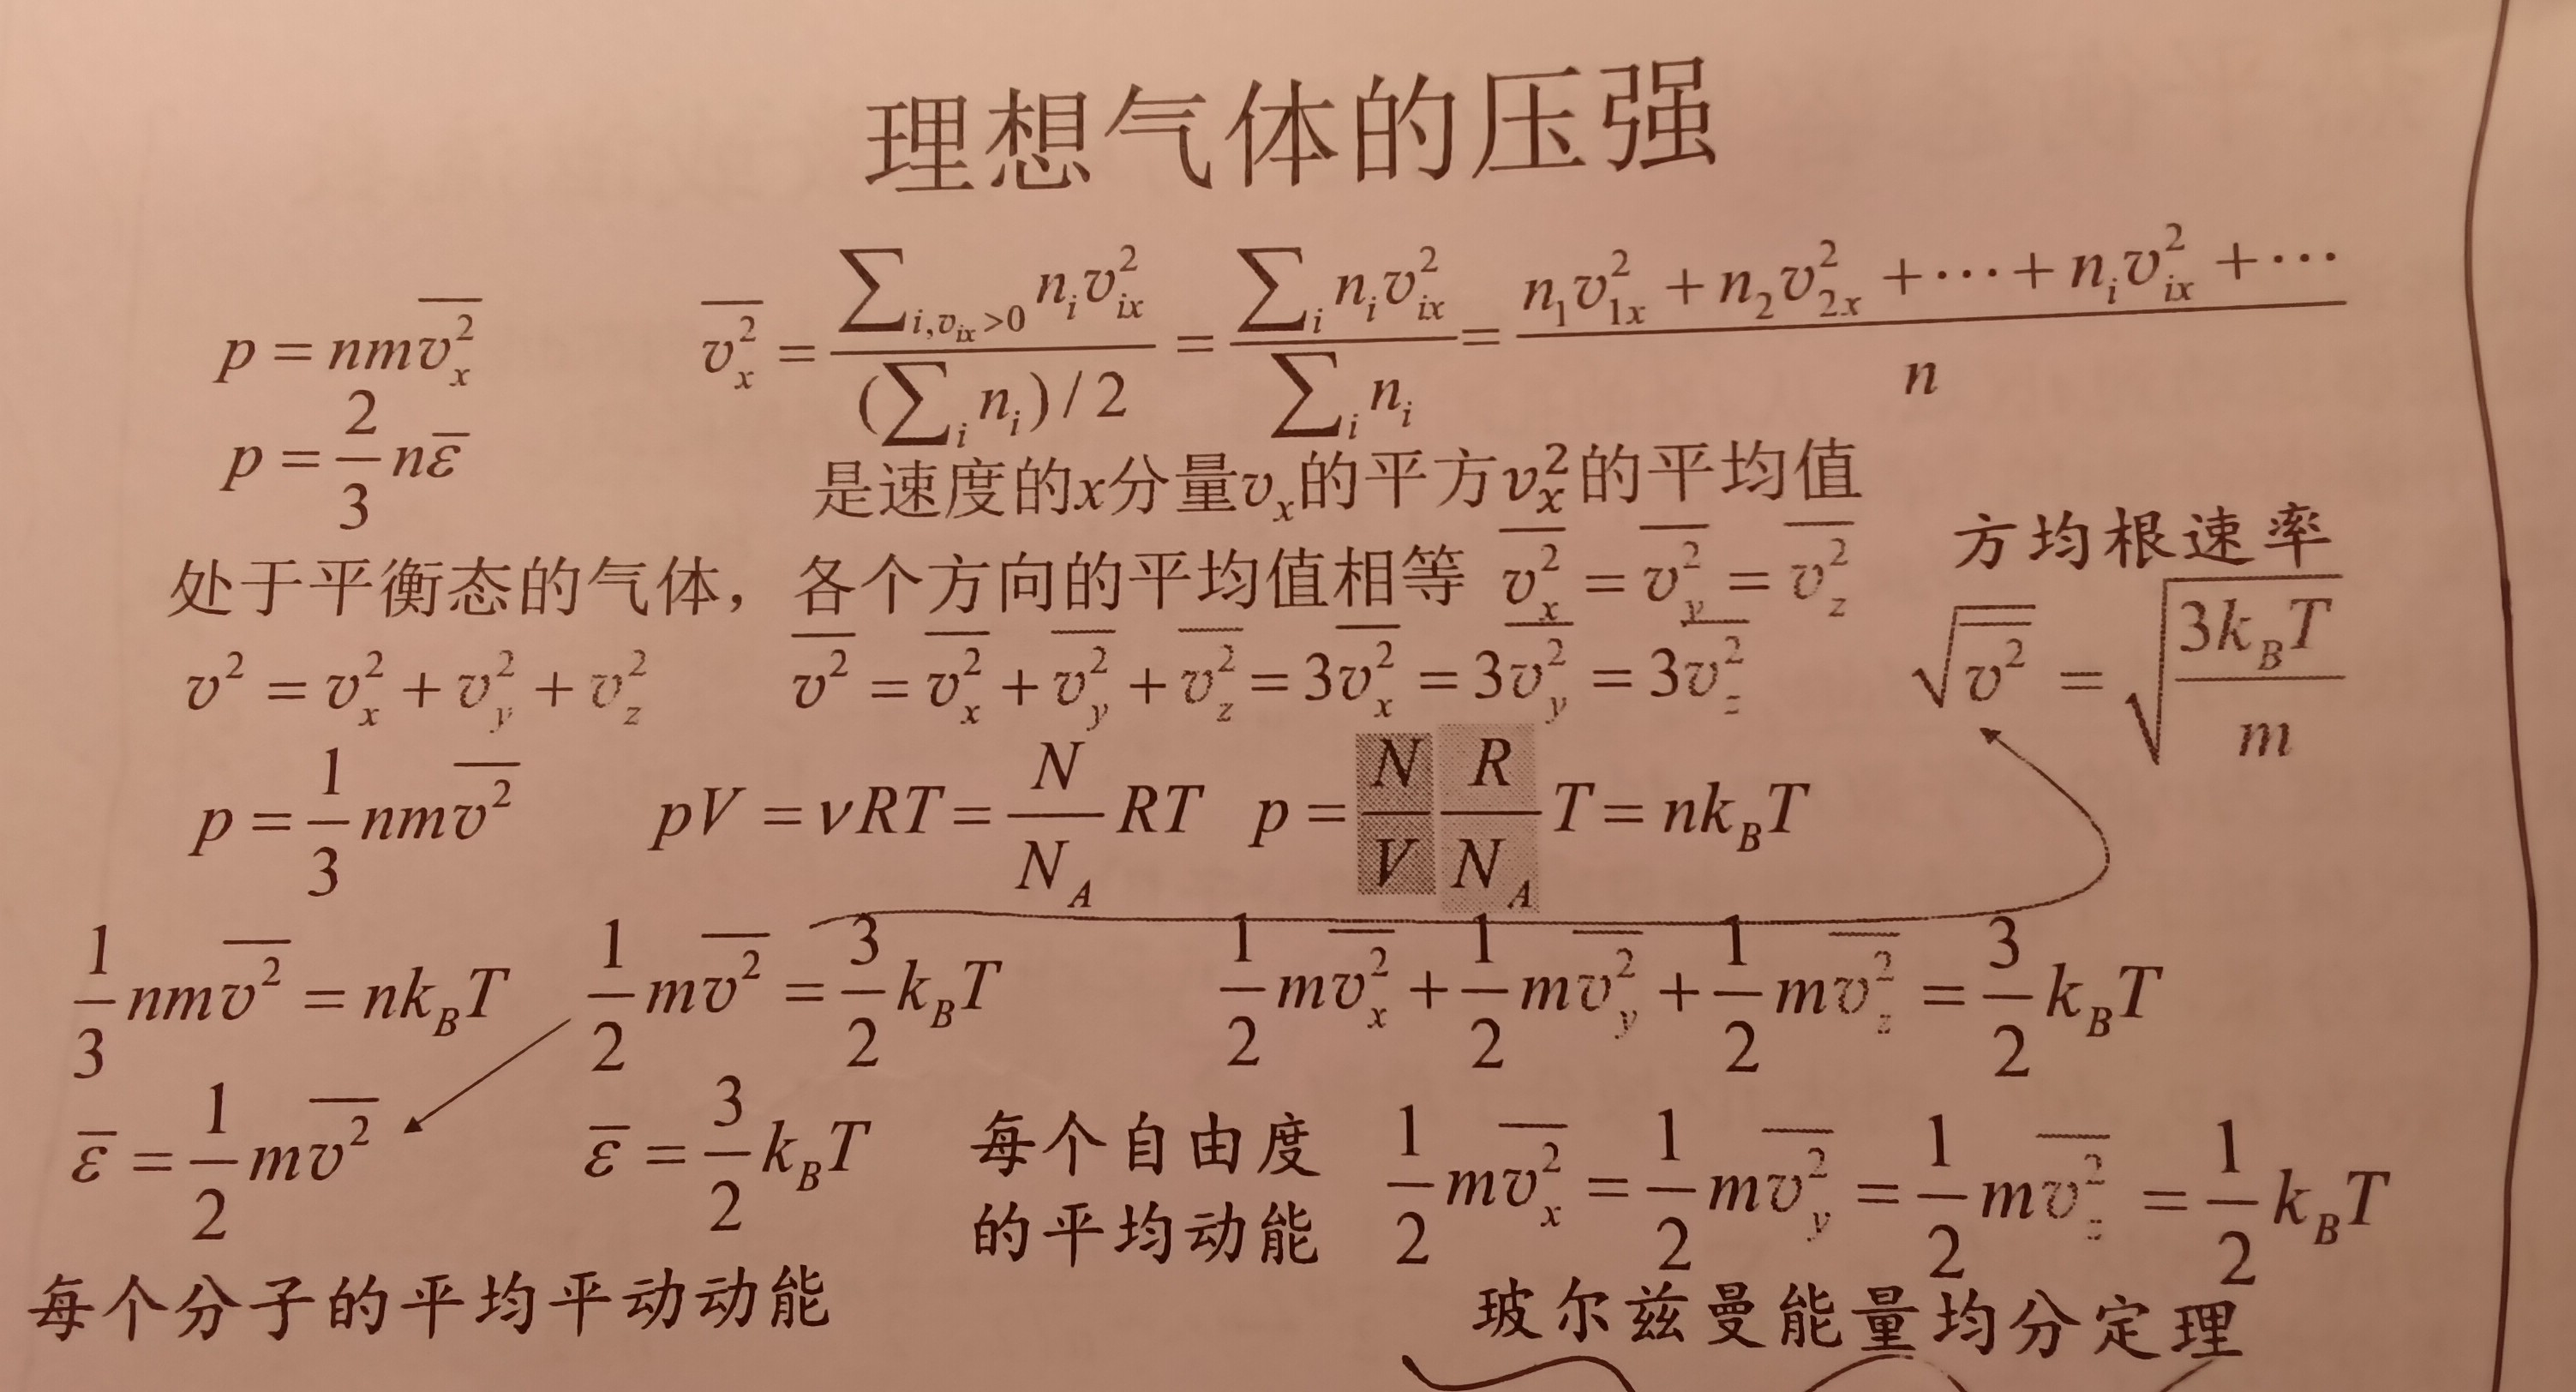 理想气体的压强
p = nm\overline{v_x^2}
\overline{v_x^2} = \frac{\sum_{i,v_{ix}>0} n_i v_{ix}^2}{(\sum_i n_i)/2} = \frac{\sum_i n_i v_{ix}^2}{\sum_i n_i} = \frac{n_1 v_{1x}^2 + n_2 v_{2x}^2 + \cdots + n_i v_{ix}^2 + \cdots}{n}
p = \frac{2}{3} n\overline{ε}
是速度的x分量v_x的平方v_x^2的平均值
处于平衡态的气体，各个方向的平均值相等 \overline{v_x^2} = \overline{v_y^2} = \overline{v_z^2}
方均根速率
v^2 = v_x^2 + v_y^2 + v_z^2
\overline{v^2} = \overline{v_x^2} + \overline{v_y^2} + \overline{v_z^2} = 3\overline{v_x^2} = 3\overline{v_y^2} = 3\overline{v_z^2}
\sqrt{\overline{v^2}} = \sqrt{\frac{3k_BT}{m}}
p = \frac{1}{3} nm\overline{v^2}
pV = νRT = \frac{N}{N_A} RT
p = \frac{N}{V} \frac{R}{N_A} T = nk_BT
\frac{1}{3} nm\overline{v^2} = nk_BT
\frac{1}{2} m\overline{v^2} = \frac{3}{2} k_BT
\frac{1}{2} m\overline{v_x^2} + \frac{1}{2} m\overline{v_y^2} + \frac{1}{2} m\overline{v_z^2} = \frac{3}{2} k_BT
\overline{ε} = \frac{1}{2} m\overline{v^2}
\overline{ε} = \frac{3}{2} k_BT
每个自由度
的平均动能
\frac{1}{2} m\overline{v_x^2} = \frac{1}{2} m\overline{v_y^2} = \frac{1}{2} m\overline{v_z^2} = \frac{1}{2} k_BT
每个分子的平均平动动能
玻尔兹曼能量均分定理